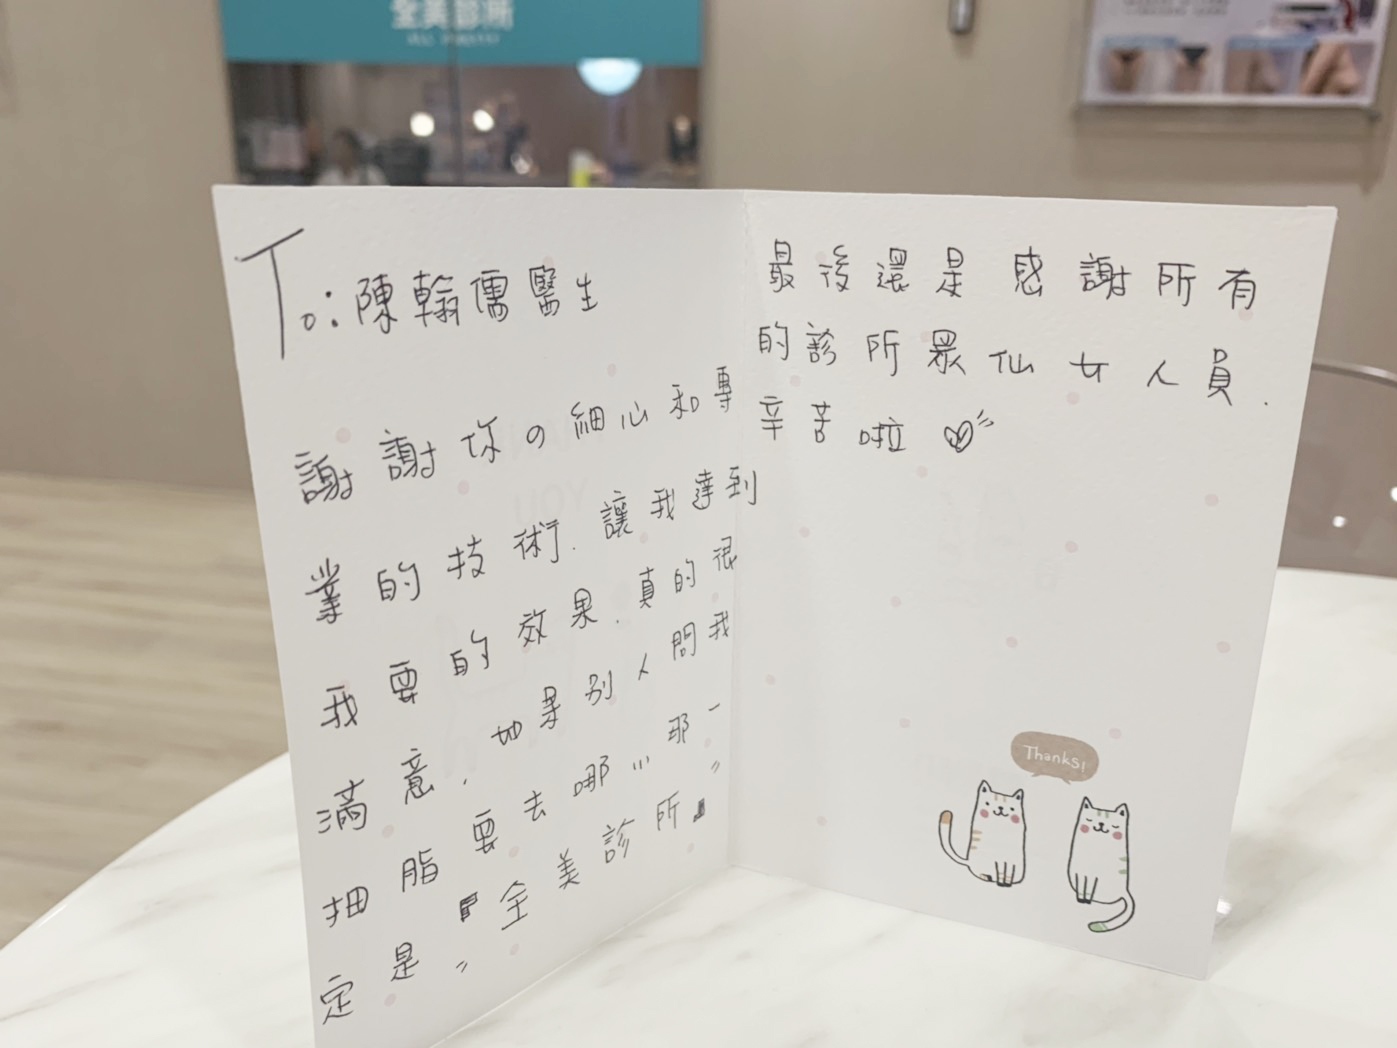 全美診所
ALL BEAUTY
To:陳翰儒醫生
謝謝你の細心和專
業的技術.讓我達到
我要的效果.真的很
滿意.如果別人問我
抽脂要去哪...那一
定是〃『全美診所』〃
最後還是感謝所有
的診所眾仙女人員.
辛苦啦
Thanks!